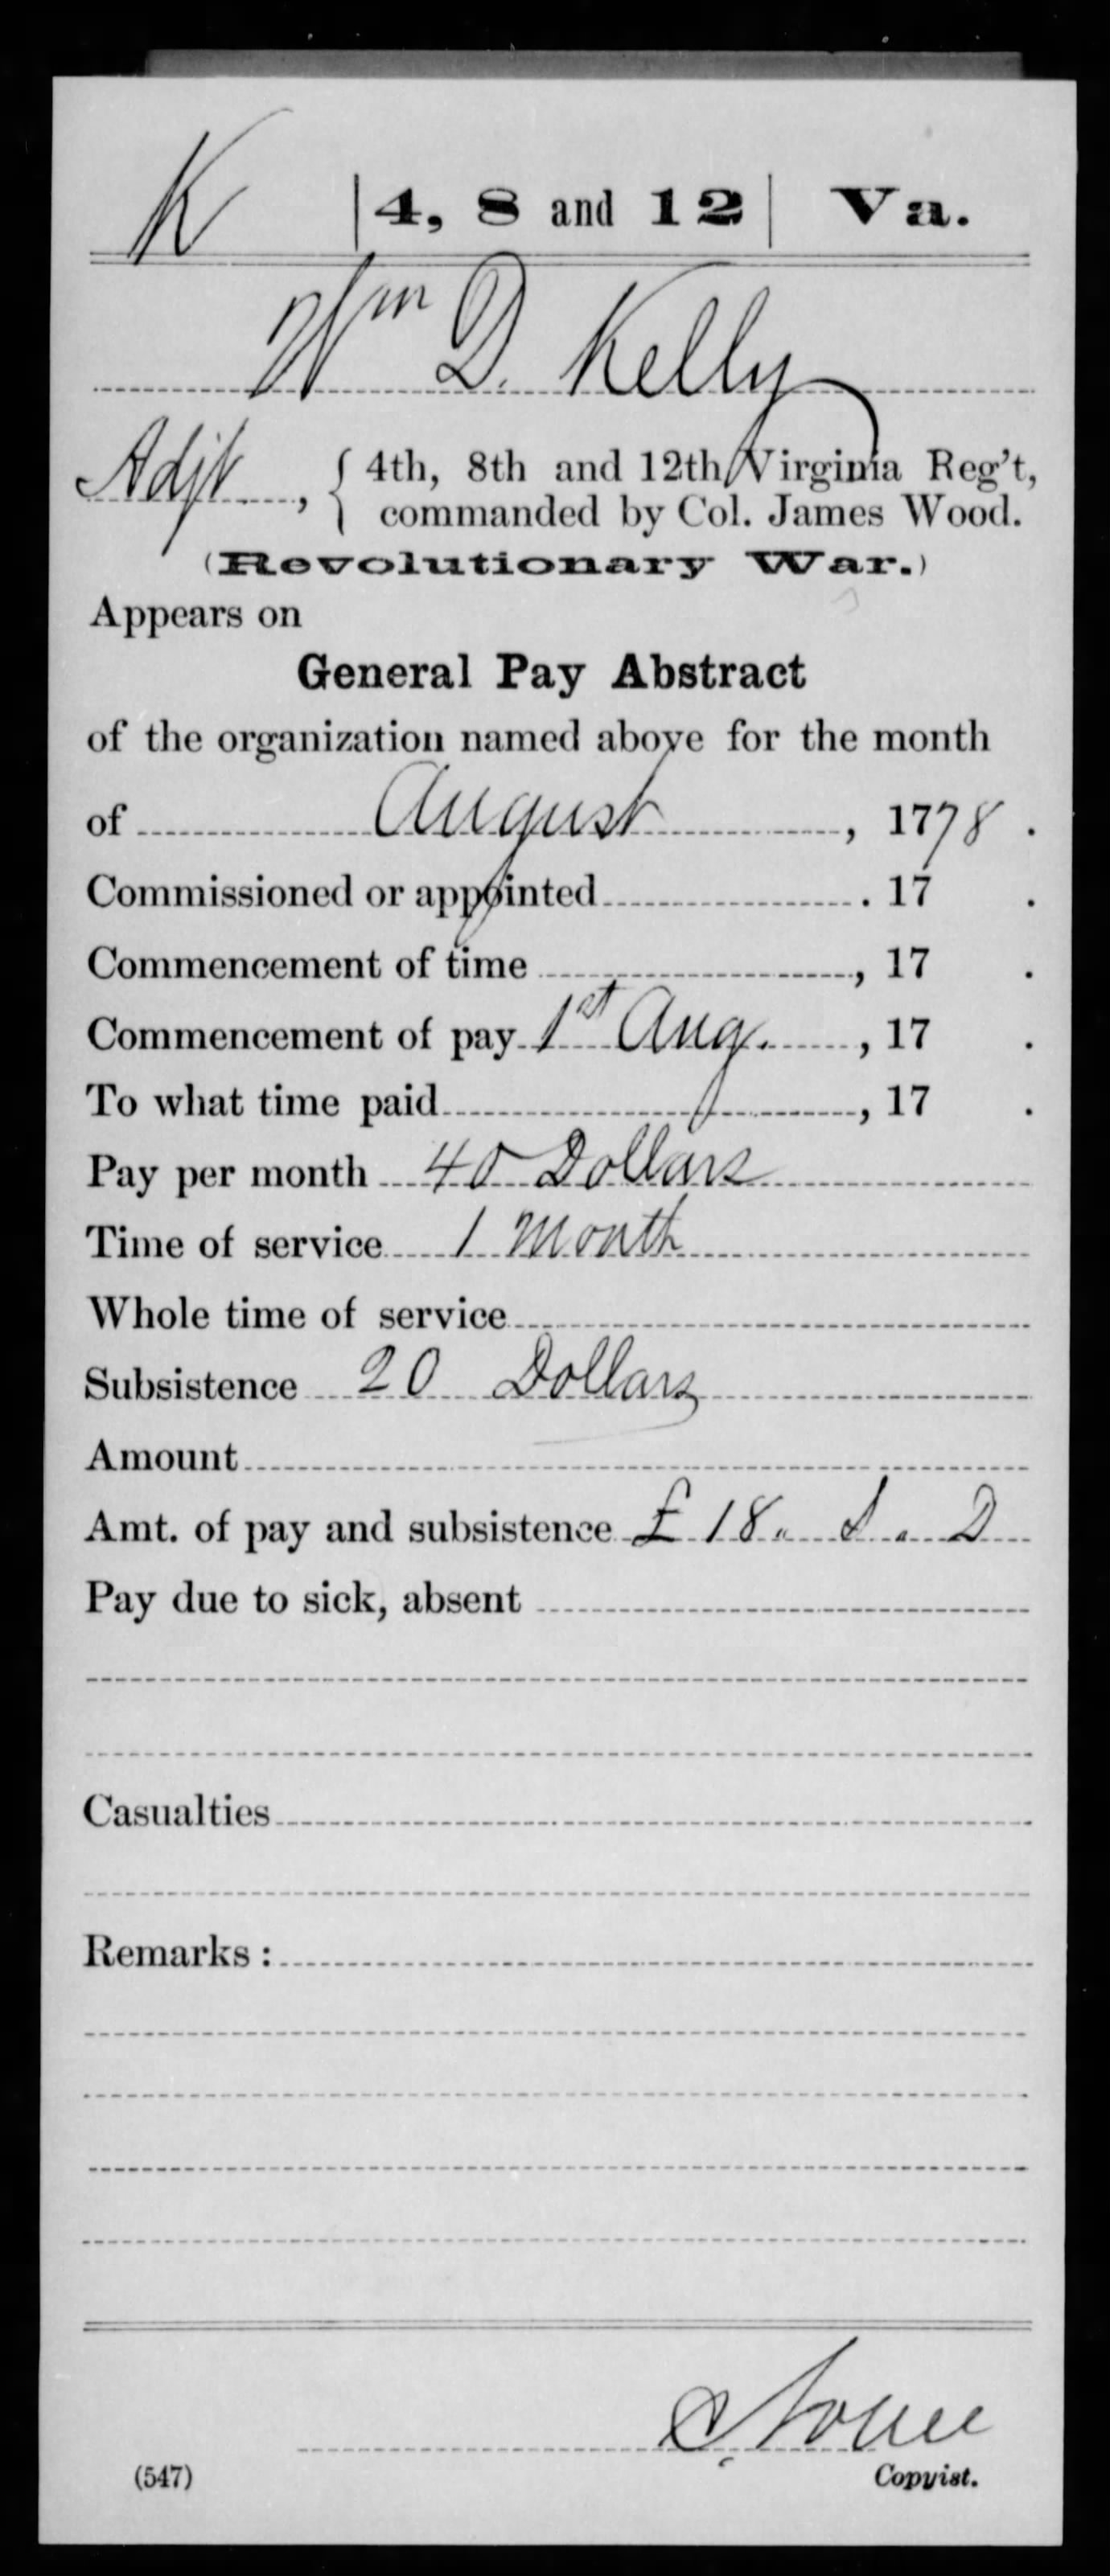 K | 4, 8 and 12 | Va.
Wm D. Kelly
Adjt, { 4th, 8th and 12th Virginia Reg't,
commanded by Col. James Wood.
(Revolutionary War.)
Appears on
General Pay Abstract
of the organization named above for the month
of August, 1778.
Commissioned or appointed . 17 .
Commencement of time , 17 .
Commencement of pay 1st Aug. , 17 .
To what time paid , 17 .
Pay per month 40 Dollars
Time of service 1 Month
Whole time of service
Subsistence 20 Dollars
Amount
Amt. of pay and subsistence £ 18 " S " D
Pay due to sick, absent
Casualties
Remarks :
(547)
Copyist.